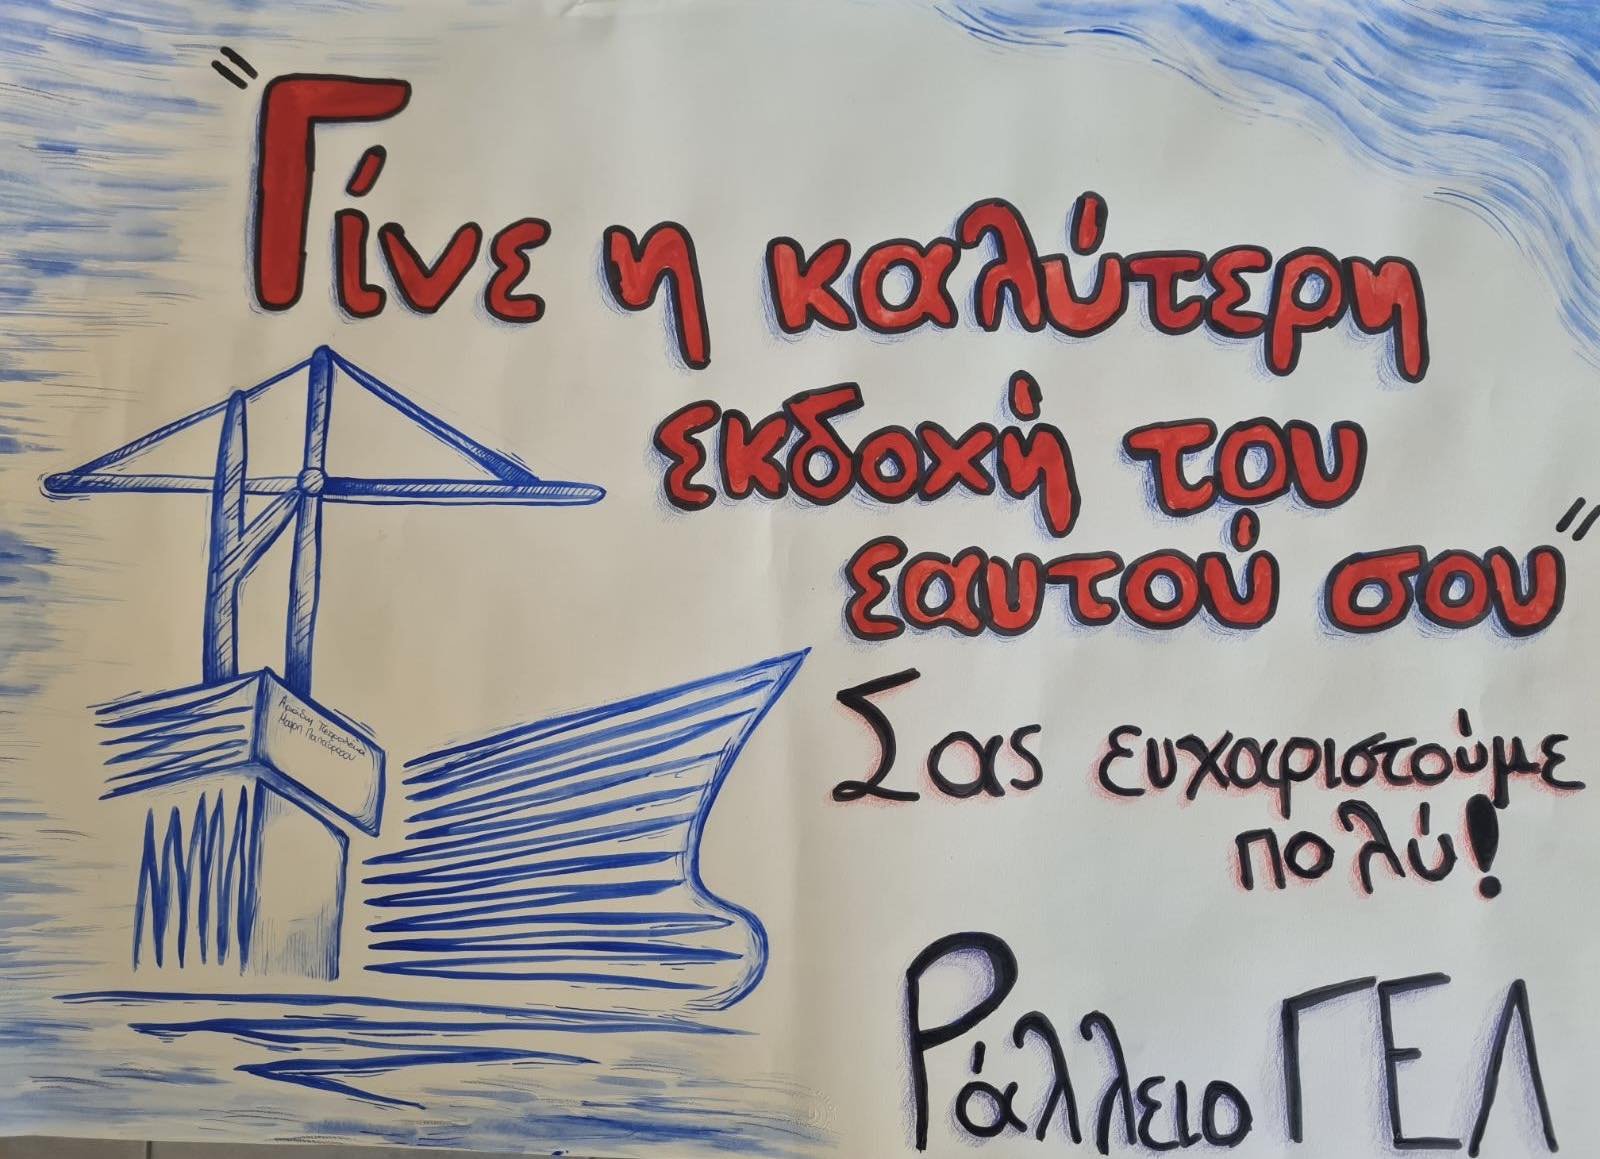 "Γίνε η καλύτερη
εκδοχή του
εαυτού σου"
Σας ευχαριστούμε
πολύ!
Ράλλειο ΓΕΛ